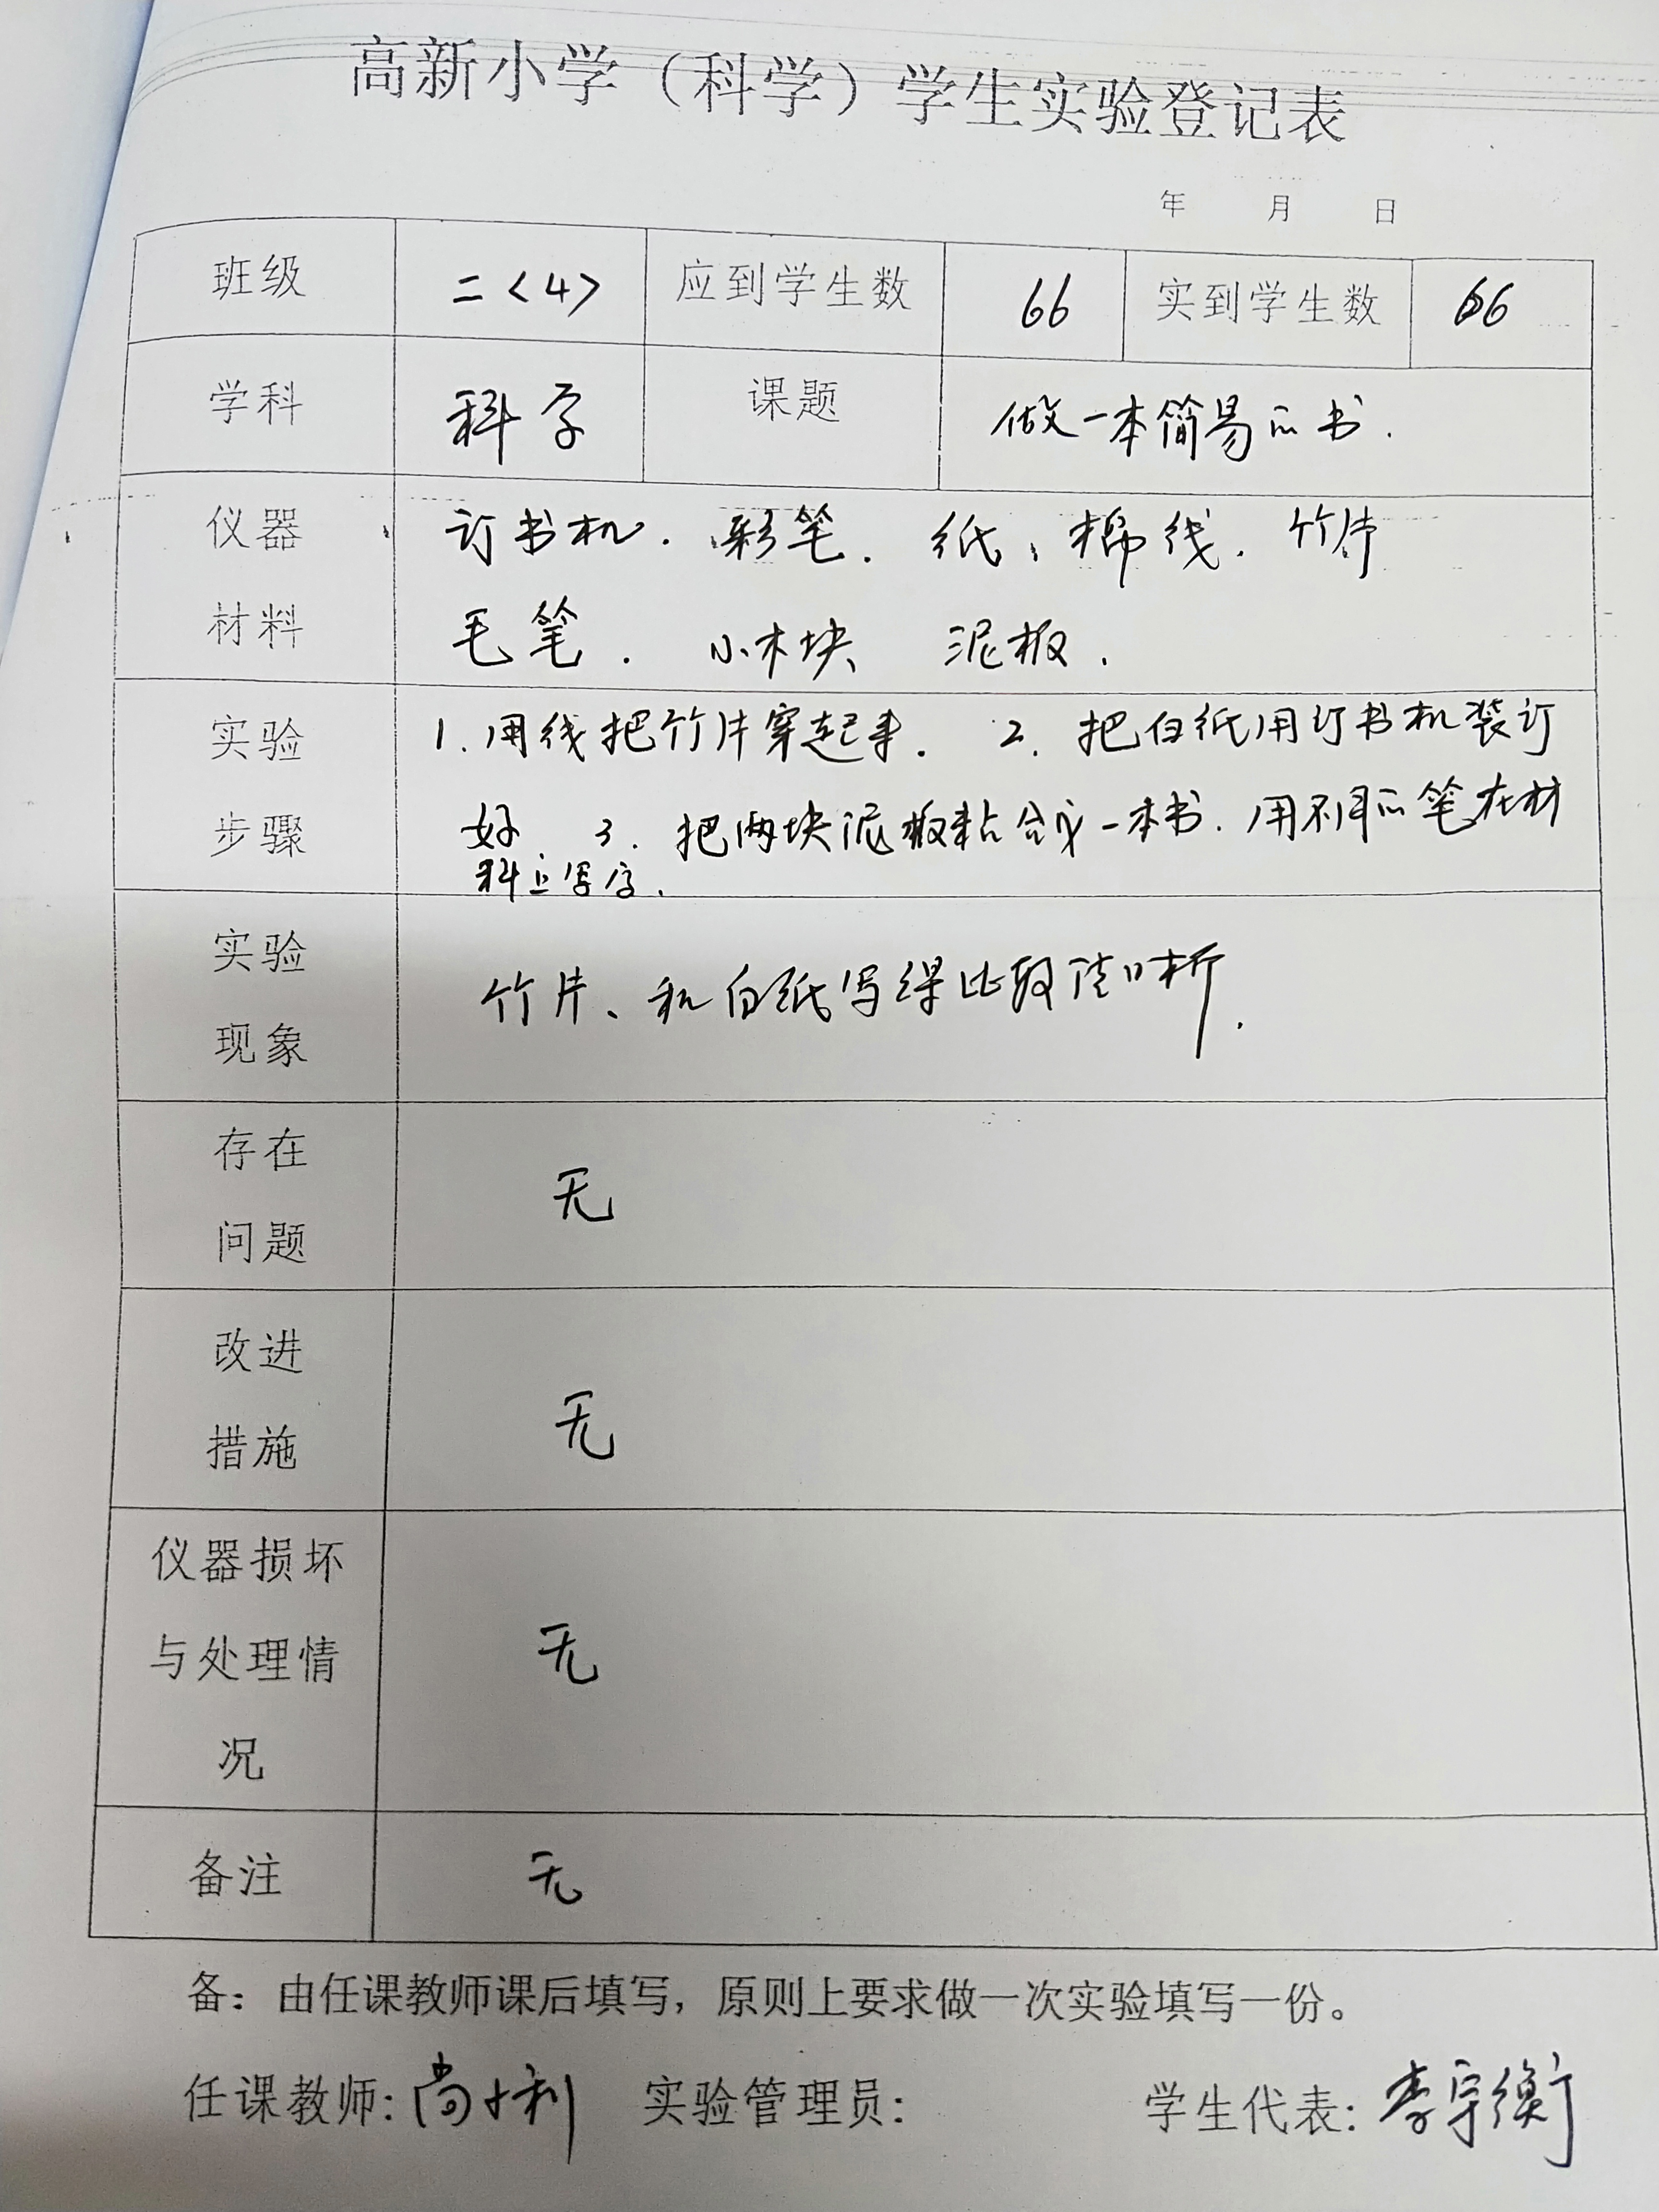 高新小学（科学）学生实验登记表
年 月 日
班级 二<4> 应到学生数 66 实到学生数 66
学科 科学 课题 做一本简易的书.
仪器 订书机. 彩笔. 纸、棉线. 竹片
材料 毛笔. 小木块 泥板.
实验 1.用线把竹片穿起来. 2.把白纸用订书机装订
步骤 好 3.把两块泥板粘合成一本书.用不同的笔在材
料上写字.
实验 竹片、和白纸写得比较清晰.
现象
存在 无
问题
改进
措施 无
仪器损坏
与处理情 无
况
备注 无
备：由任课教师课后填写，原则上要求做一次实验填写一份。
任课教师: 尚 利 实验管理员: 学生代表: 李宇衡